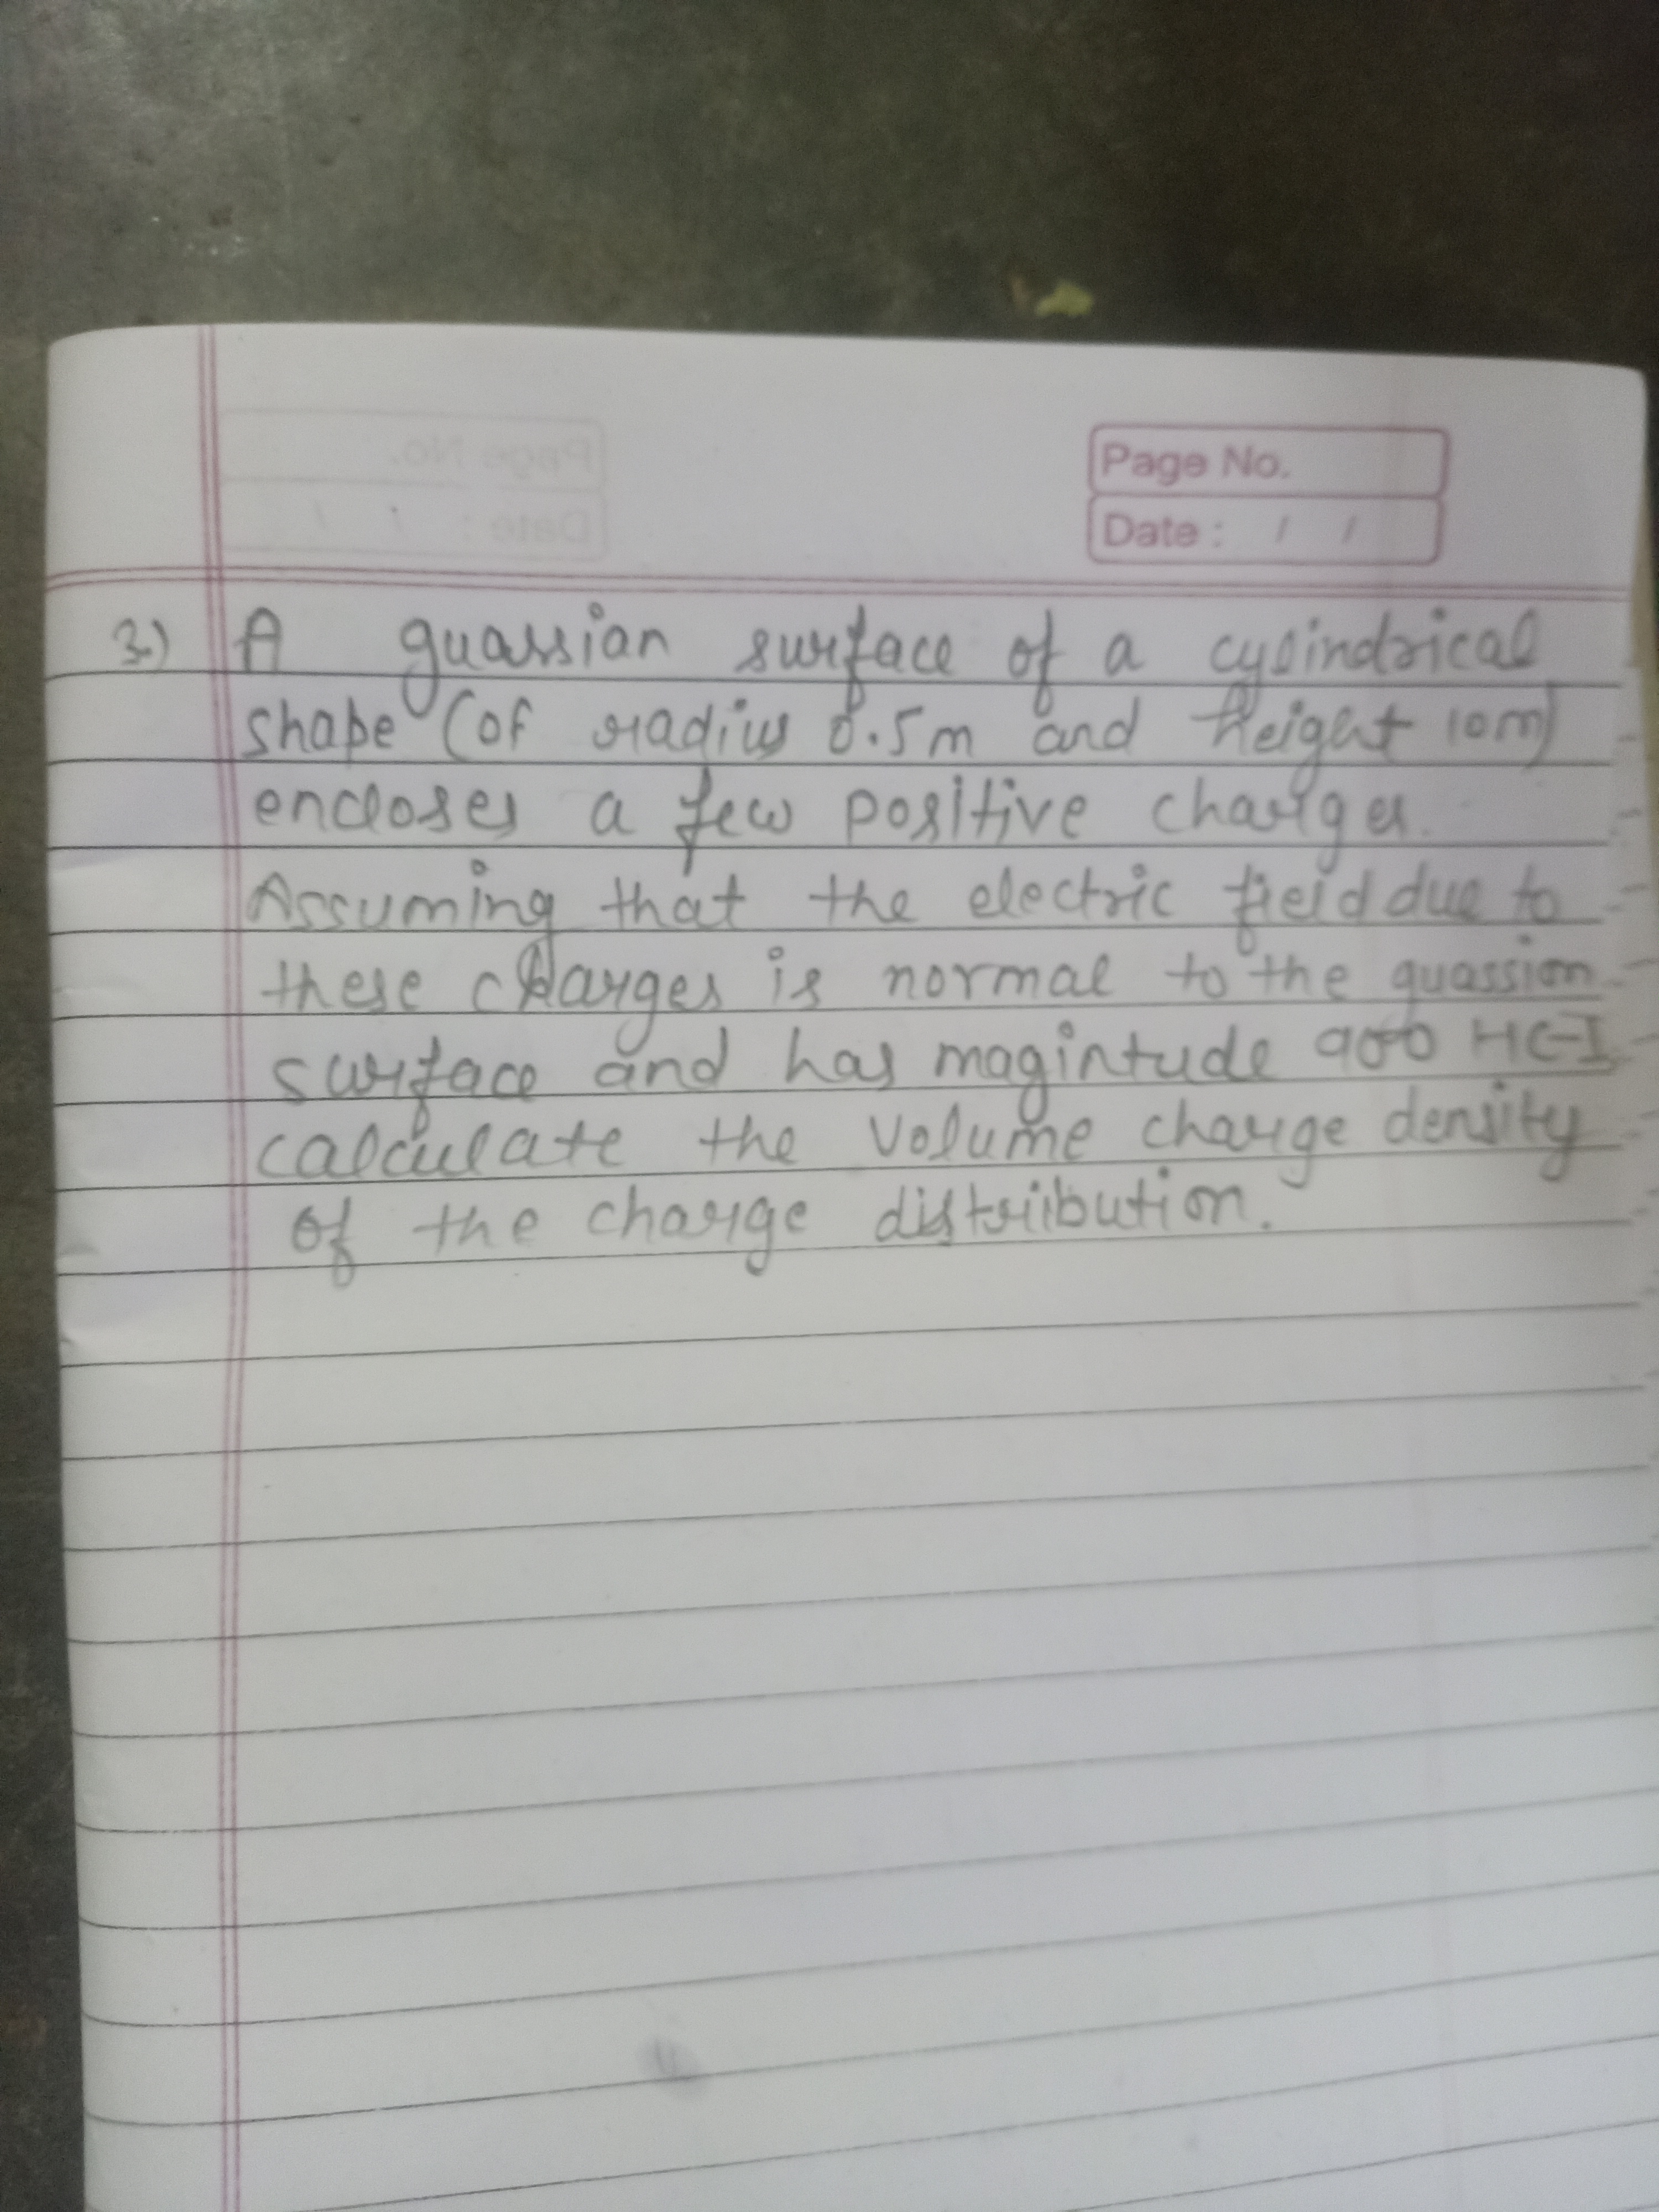 Page No.
Date : / /
3.) A guassian surface of a cylindrical
shape (of radius 0.5m and height 10m)
encloses a few positive charges.
Assuming that the electric field due to
these charges is normal to the guassion
surface and has magintude 900 HC-I
calculate the volume charge density
of the charge distribution.